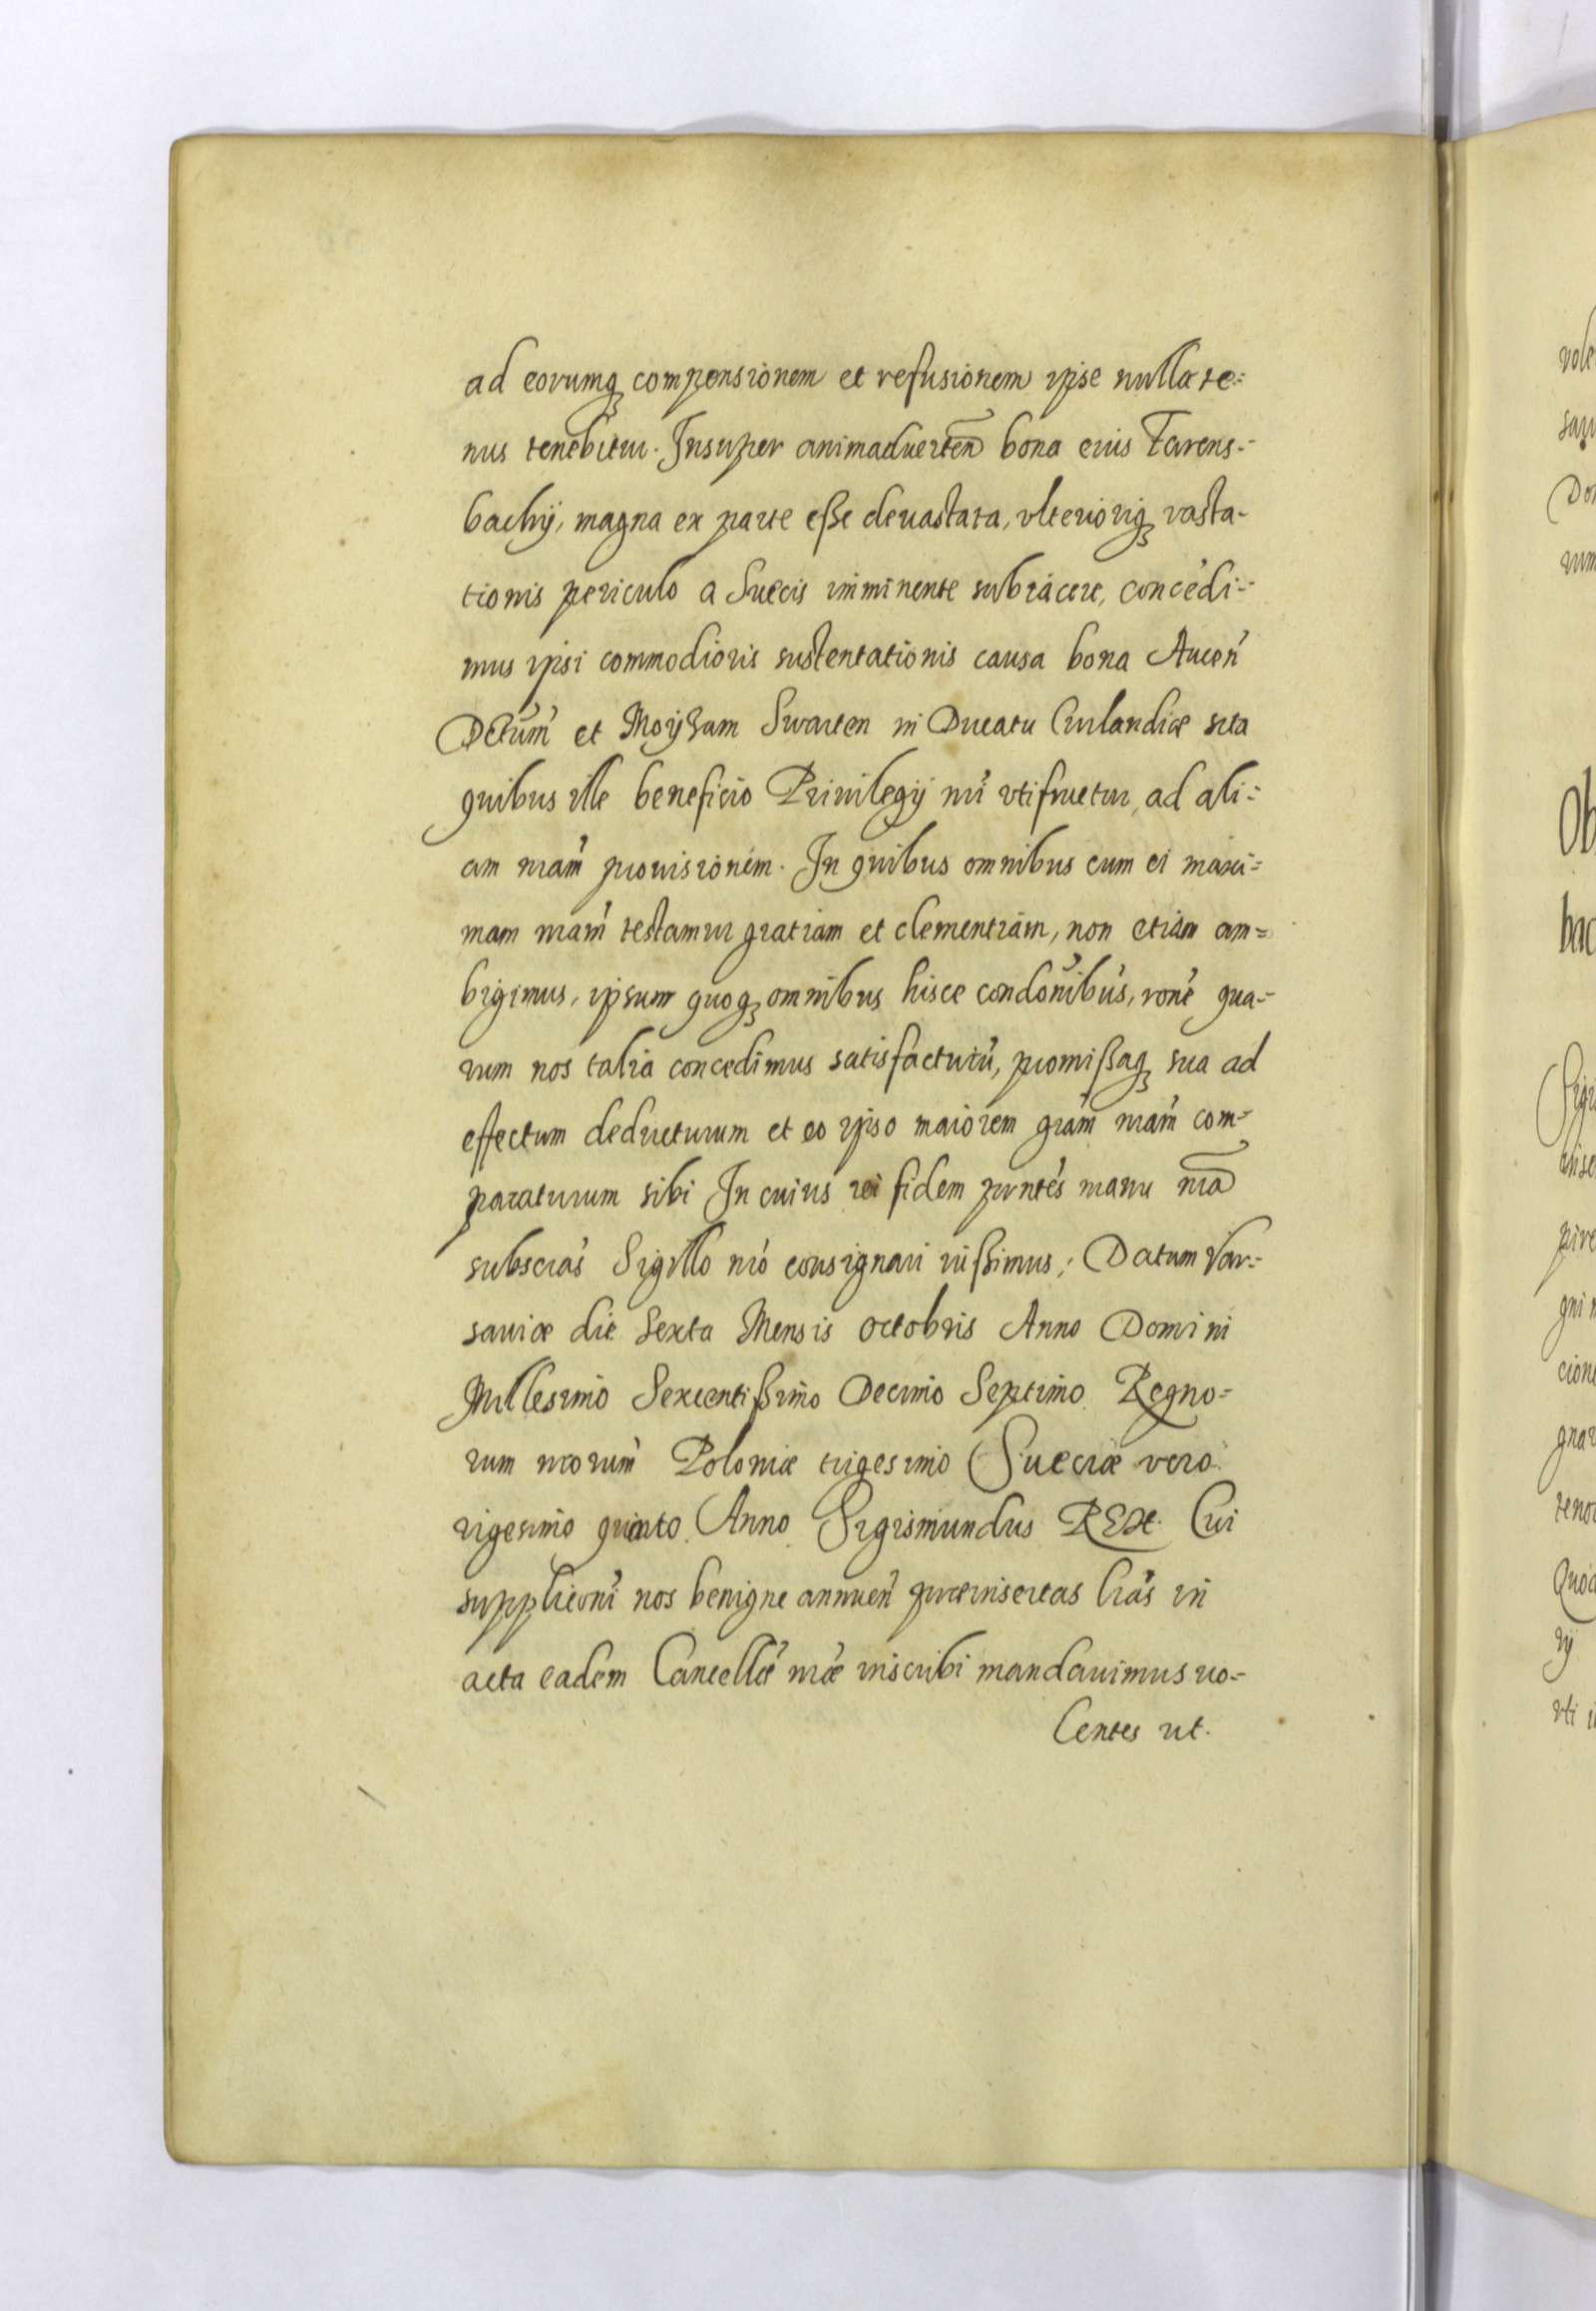 ad eorumq compensionem et refusionem ipse nullate=
nus tenebitur. Insuper animaduerten bona eius Farens=
bachij, magna ex parte eße deuastata, vlteriorisq vasta-
tionis periculo a Suecis imminente subiacere, concedi=
mus ipsi commodioris sustentationis causa bona Aucen
Dctum et Moyżam Swarten in Ducatu Curlandiæ sita
quibus ille beneficio Priuilegij nri vtifruetur, ad ali=
am nram prouisionem. In quibus omnibus cum ei maxi=
mam nram testamur gratiam et clementiam, non etiam am=
bigimus, ipsum quoq omnibus hisce condonibus, rone qua=
rum nos talia concedimus satisfacturu, promißaq sua ad
effectum deducturum et eo ipso maiorem gram nram com=
paraturum sibi In cuius rei fidem prntes manu nra
subscras Sigillo nro consignari iußimus; Datum Var=
sauiæ die Sexta Mensis octobris Anno Domini
Millesimo Sexcentißimo Decimo Septimo Regno=
rum nrorum Poloniæ trigesimo Sueciæ vero
vigesimo quinto Anno Sigismundus REX. Cui
supplicaoni nos benigne annuen præinsertas lras in
acta eadem Cancellæ nræ inscribi mandauimus uo=
Centes ut.